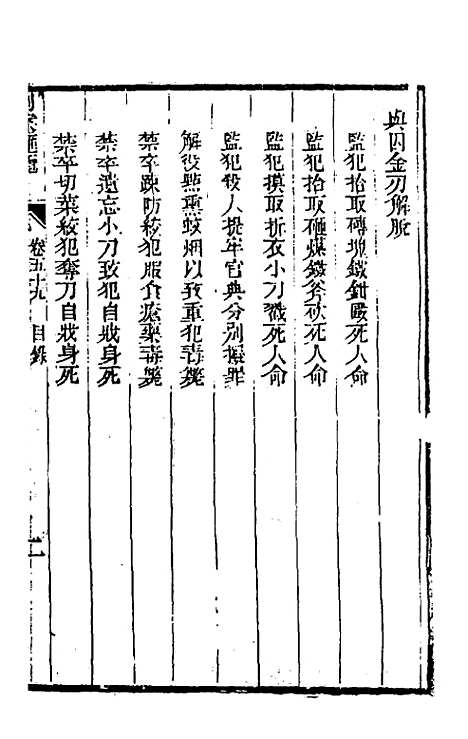 與囚金刃解脫
監犯拾取磚塊鐵鉗毆死人命
監犯拾取砸煤鐵斧砍死人命
監犯摸取拆衣小刀戳死人命
監犯殺人提牢官典分別擬罪
解役點熏蚊烟以致重犯毒斃
禁卒疎防絞犯服食瘡藥毒斃
禁卒遺忘小刀致犯自戕身死
禁卒切菜絞犯奪刀自戕身死
卷五十九 目錄